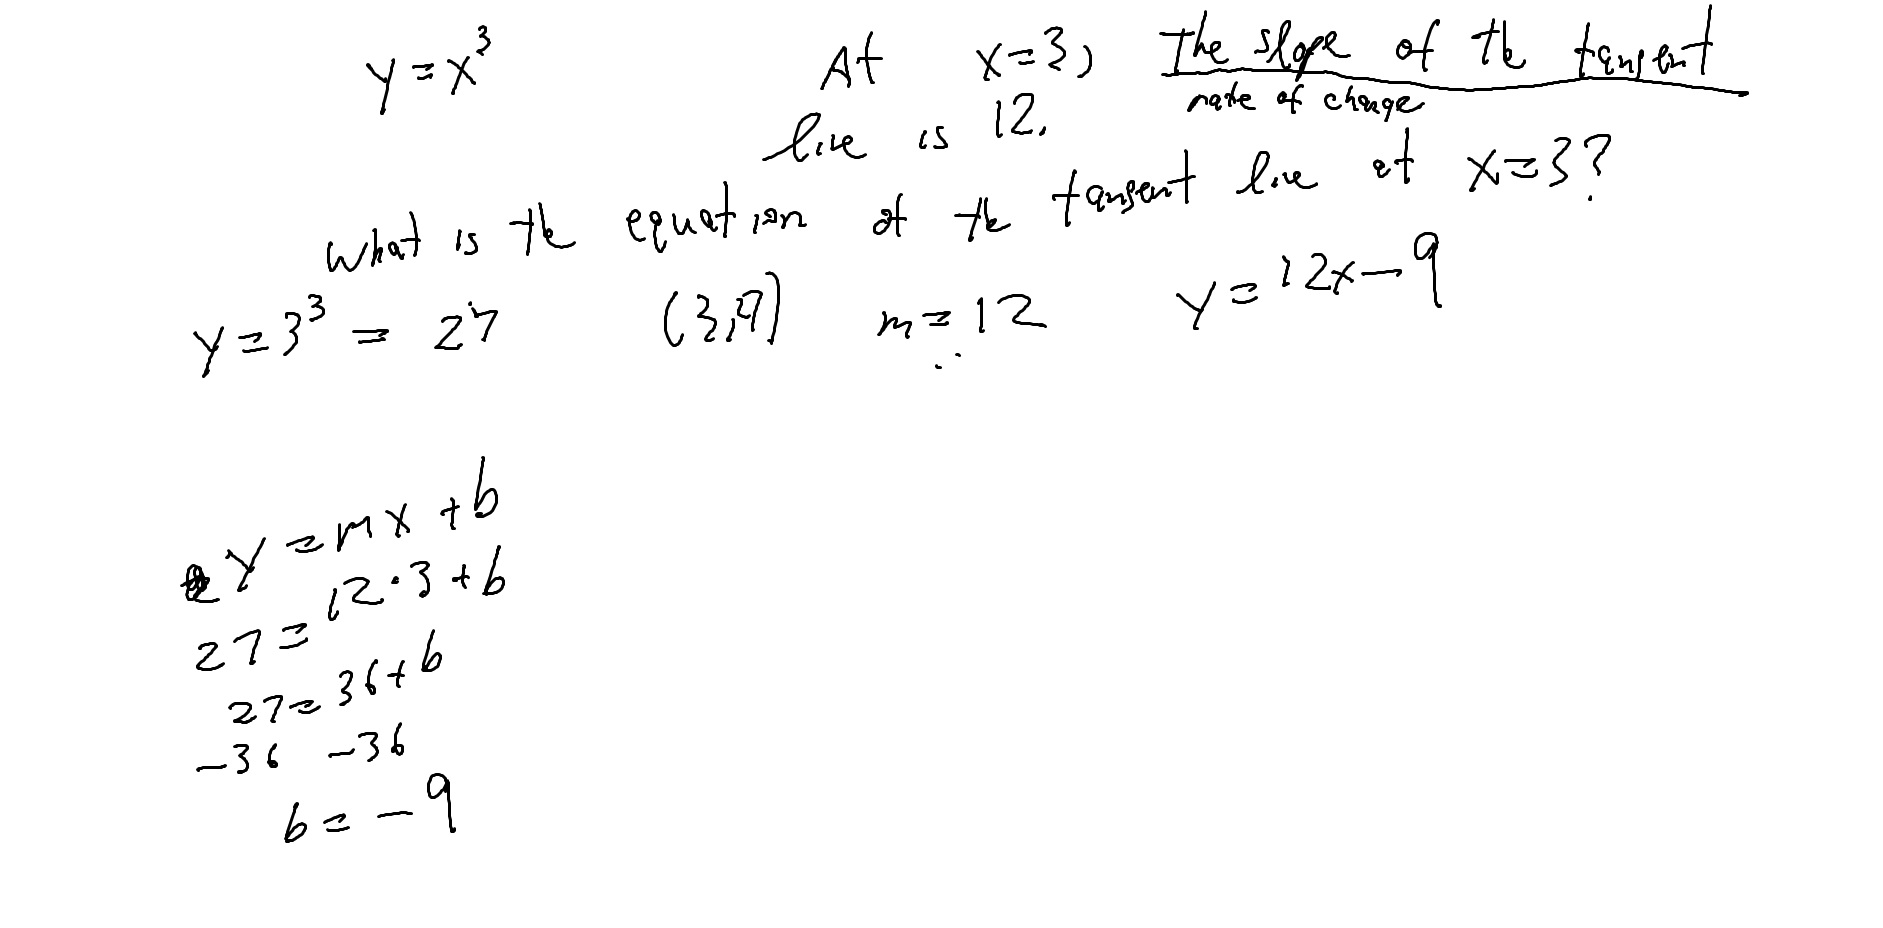 y = x³
At x=3, The slope of the tangent
rate of change
line is 12.
What is the equation of the tangent line at x=3?
y = 3³ = 27 (3,9) m = 12 y = 12x - 9
y = mx + b
27 = 12·3 + b
27 = 36 + b
-36 -36
b = -9